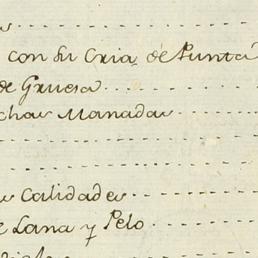 con su Cria de Punta
de Gruesa
chas Manadas
Calidades
Lana y Pelo